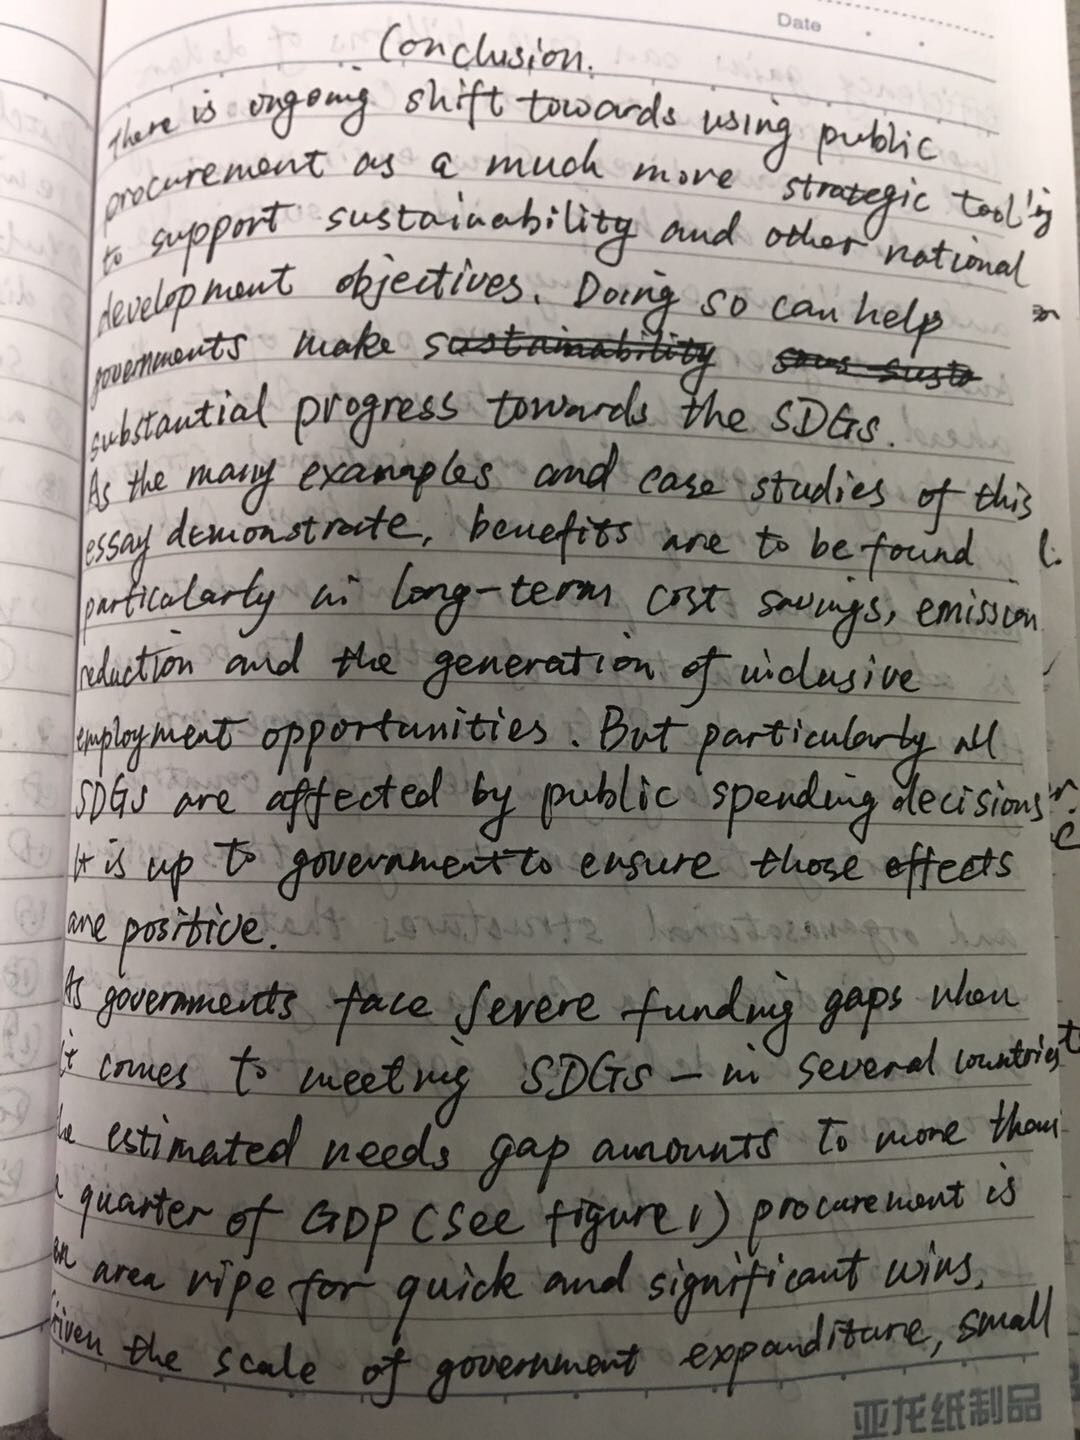 Date
Conclusion.
There is ongoing shift towards using public
procurement as a much more strategic tool
to support sustainability and other national
development objectives. Doing so can help
governments make
substantial progress towards the SDGs.
As the many examples and case studies of this
essay demonstrate, benefits are to be found
particularly in long-term cost savings, emission
reduction and the generation of inclusive
employment opportunities. But particularly all
SDGs are affected by public spending decisions
It is up to government to ensure those effects
are positive.
As governments face severe funding gaps when
it comes to meeting SDGs – in several countries
the estimated needs gap amounts to more than
a quarter of GDP (see figure 1) procurement is
an area ripe for quick and significant wins.
Given the scale of government expanditure, small
亚龙纸制品